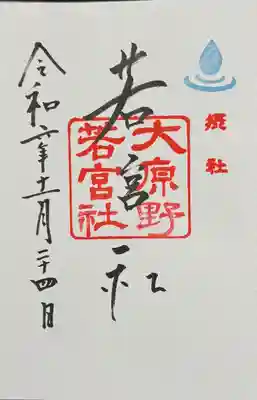 摂社
若宮社
大原野
若宮社
令和六年十一月二十四日